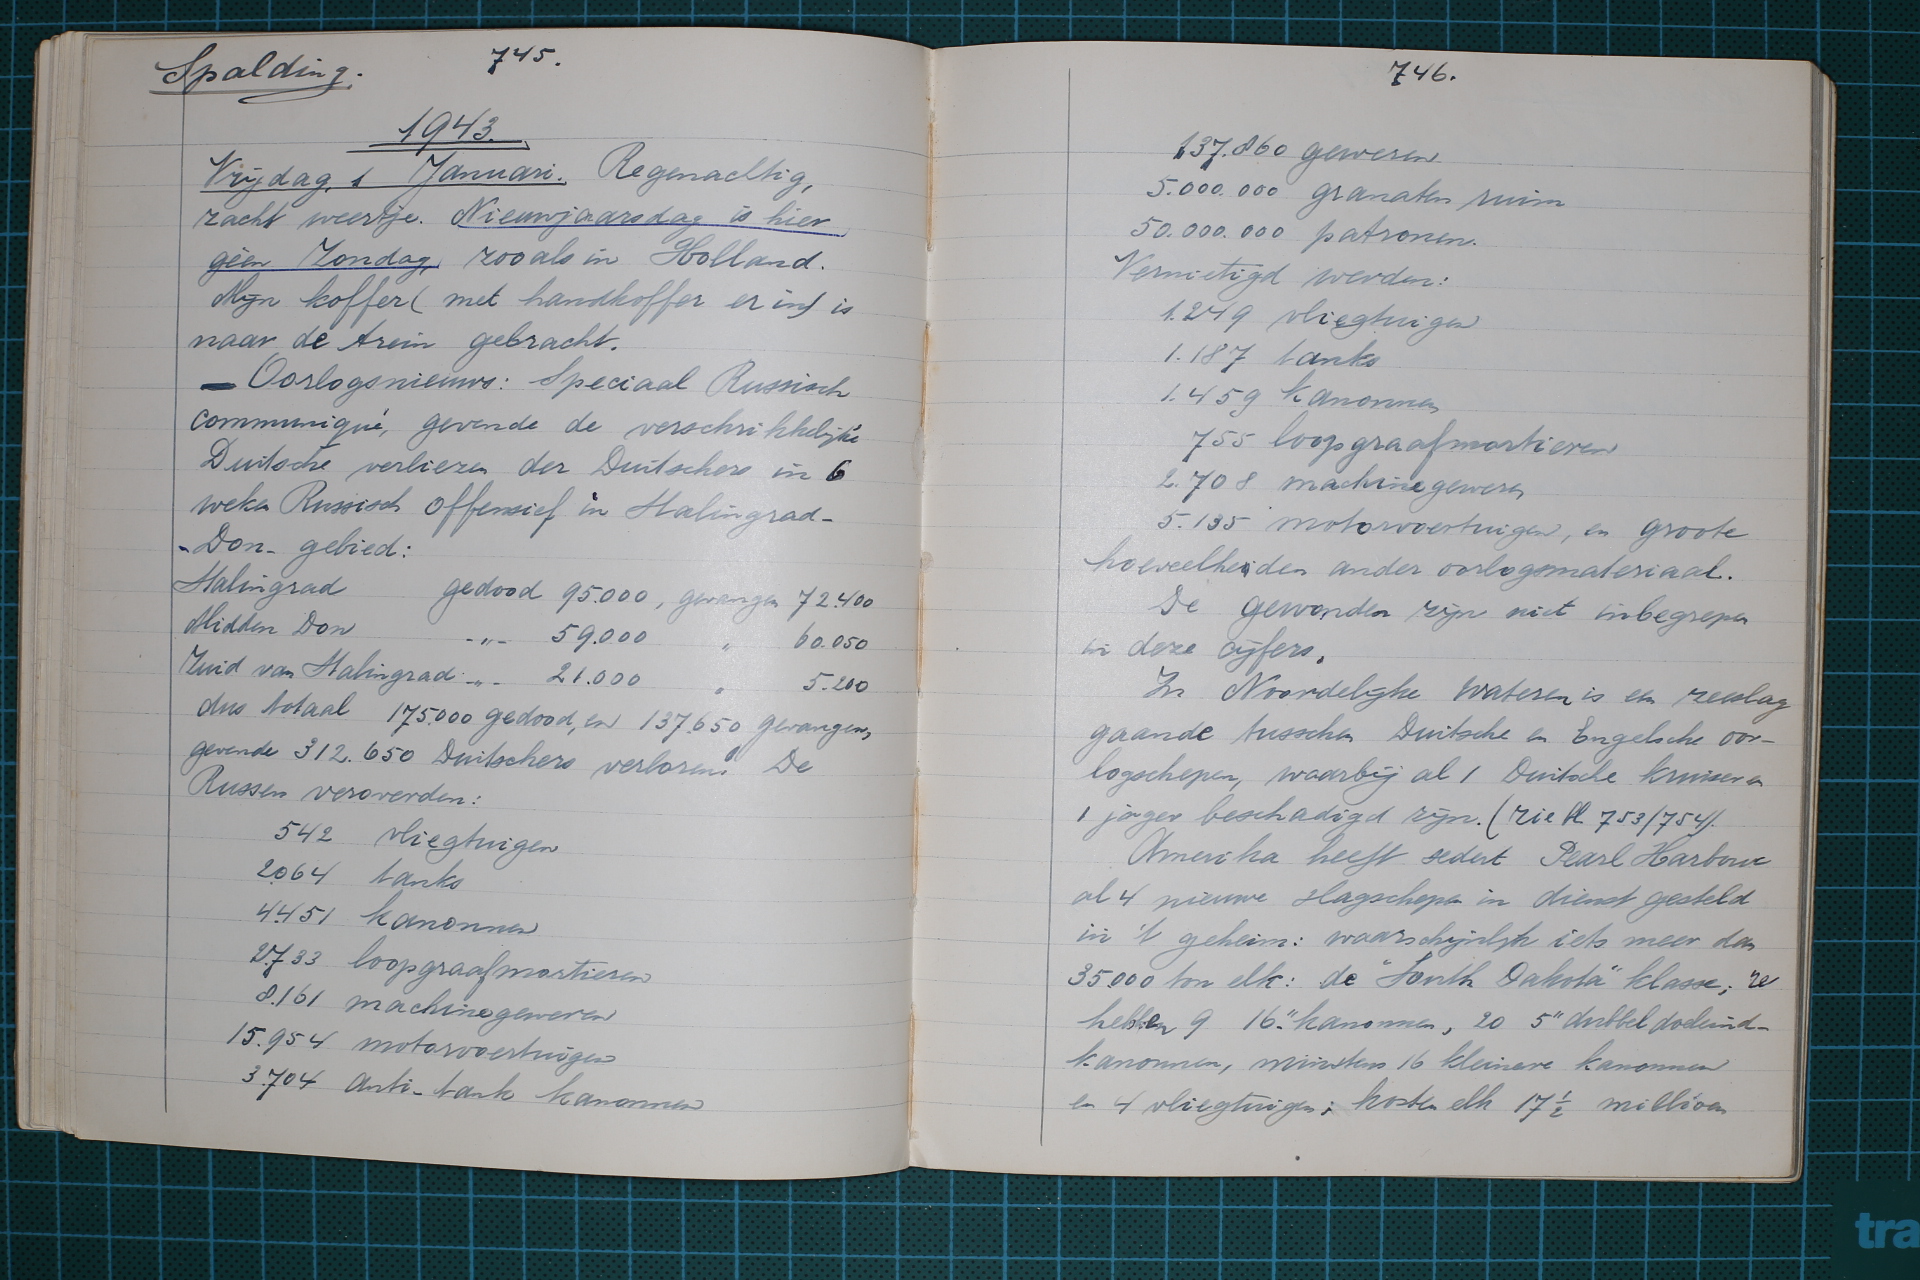 Spalding.
745.
1943.
Vrijdag 1 Januari. Regenachtig,
zacht weertje. Nieuwjaarsdag is hier
géén Zondag, zooals in Holland.
Mijn koffer (met handkoffer er in) is
naar de trein gebracht.
— Oorlogsnieuws: Speciaal Russisch
communiqué, gevende de verschrikkelijke
Duitsche verliezen der Duitschers in 6
weken Russisch offensief in Stalingrad-
-Don- gebied:
Stalingrad gedood 95.000, gevangen 72.400
Midden Don -„- 59.000 „ 60.050
Zuid van Stalingrad -„- 21.000 „ 5.200
dus totaal 175.000 gedood, en 137.650 gevangen,
gevende 312.650 Duitschers verloren! De
Russen veroverden:
542 vliegtuigen
2.064 tanks
4.451 kanonnen
2.733 loopgraafmortieren
8.161 machinegeweren
15.954 motorvoertuigen
3.704 anti-tank kanonnen
746.
137.860 geweren
5.000.000 granaten ruim
50.000.000 patronen.
Vernietigd werden:
1.249 vliegtuigen
1.187 tanks
1.459 kanonnen
755 loopgraafmortieren
2.708 machinegeweren
5.135 motorvoertuigen, en groote
hoeveelheiden ander oorlogsmateriaal.
De gewonden zijn niet inbegrepen
in deze cijfers.
In Noordelijke wateren is een zeeslag
gaande tusschen Duitsche en Engelsche oor-
logschepen, waarbij al 1 Duitsche kruiser en
1 jager beschadigd zijn. (zie bl 753/754).
Amerika heeft sedert Pearl Harbour
al 4 nieuwe slagschepen in dienst gesteld
in 't geheim: waarschijnlijk iets meer dan
35.000 ton elk: de "South Dakota" klasse; ze
hebben 9 16" kanonnen, 20 5" dubbeldoeleind-
kanonnen, minstens 16 kleinere kanonnen
en 4 vliegtuigen; kosten elk 17 1/2 millioen
tra